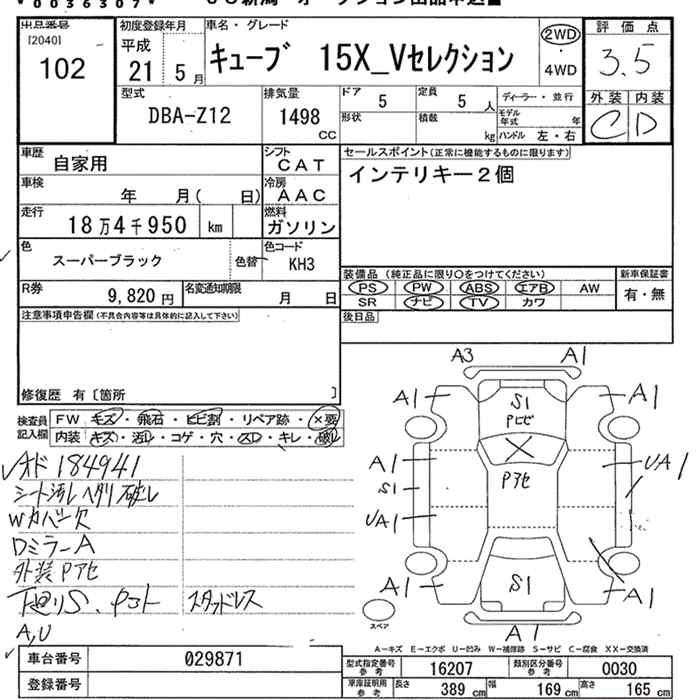 0036307
出品番号
[2040]
102
初度登録年月
平成
21年5月
車名・グレード
キューブ 15X_Vセレクション
2WD
・
4WD
評価点
3.5
外装 内装
C D
型式
DBA-Z12
排気量
1498
CC
ドア
5
定員
5人
形状
積載
kg
ディーラー・並行
モデル年式 年
ハンドル 左・右
車歴
自家用
シフト
CAT
車検
年 月( 日)
冷房
AAC
走行
18万4千950 km
燃料
ガソリン
色
スーパーブラック
色替
色コード
KH3
R券
9,820円
名変通知期限
月 日
セールスポイント(正常に機能するものに限ります)
インテリキー2個
装備品(純正品に限り○をつけてください)
PS PW ABS エアB AW
SR ナビ TV カワ
新車保証書
有・無
後日品
注意事項申告欄(不具合内容等は具体的に記入して下さい)
修復歴 有〔箇所 〕
検査員
記入欄
FW キズ・飛石・ヒビ割・リペア跡・×要
内装 キズ・汚レ・コゲ・穴・スレ・キレ・破レ
オド 184941
シート汚レ ヘタリ 破レ
Wカバー欠
DミラーA
外装Pアセ
下廻りS.
スタッドレス
A,U
A3 A1
A1 S1 A1
Pヒビ
A1 Pアセ UA1
S1
UA1
A1 S1 A1
A1
スペア
A-キズ E-エクボ U-凹み W-補修跡 S-サビ C-腐食 XX-交換済
車台番号
029871
登録番号
型式指定番号
参考
16207
類別区分番号
参考
0030
車庫証明用
参考
長さ 389 cm 幅 169 cm 高さ 165 cm